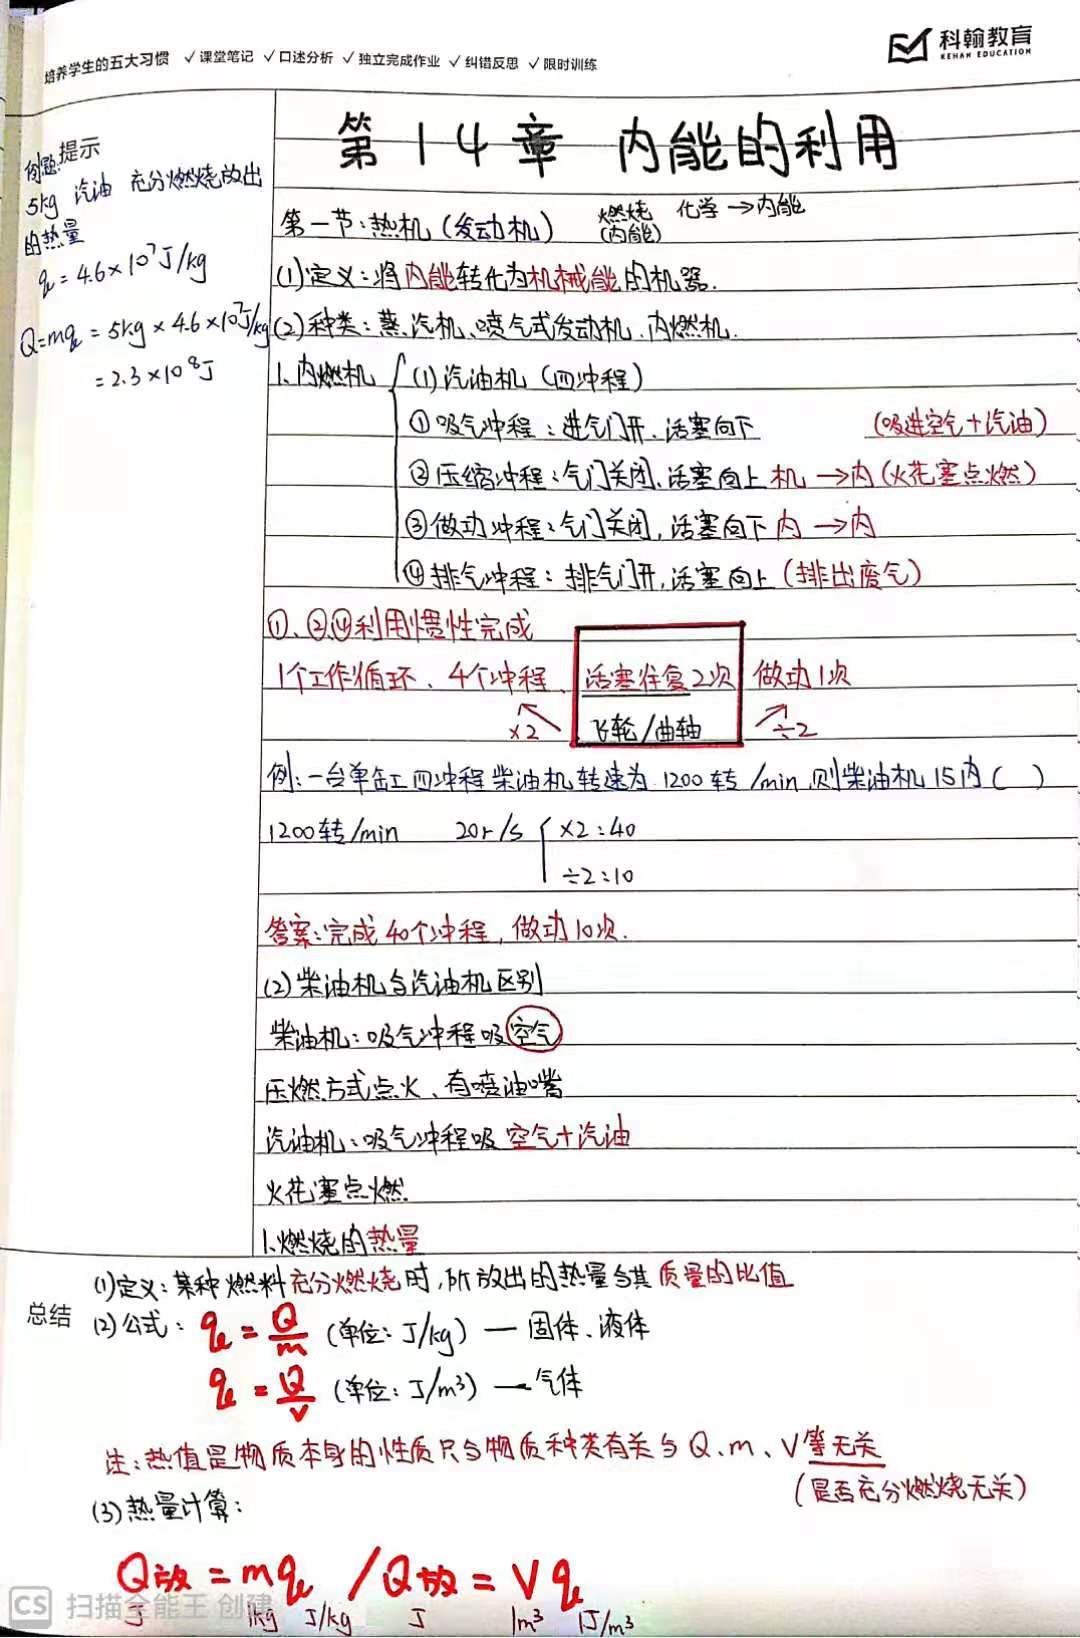 培养学生的五大习惯 ✓课堂笔记 ✓口述分析 ✓独立完成作业 ✓纠错反思 ✓限时训练
科翰教育
KEHAN EDUCATION
第14章 内能的利用
提示
例题:
5kg 汽油 充分燃烧放出
的热量
q=4.6×10⁷J/kg
Q=mq=5kg×4.6×10⁷J/kg
=2.3×10⁸J
第一节:热机(发动机) 燃烧 化学→内能
(内能)
(1)定义:将内能转化为机械能的机器.
(2)种类:蒸汽机、喷气式发动机、内燃机.
1、内燃机 (1)汽油机(四冲程)
①吸气冲程:进气门开、活塞向下 (吸进空气+汽油)
②压缩冲程:气门关闭、活塞向上 机→内(火花塞点燃)
③做功冲程:气门关闭,活塞向下 内→内
④排气冲程:排气门开,活塞向上(排出废气)
①、②④利用惯性完成
1个工作循环、4个冲程、活塞往复2次 做功1次
×2 飞轮/曲轴 ÷2
例:一台单缸四冲程柴油机转速为1200转/min,则柴油机1S内( )
1200转/min 20r/s ×2:40
÷2:10
答案:完成40个冲程,做功10次.
(2)柴油机与汽油机区别
柴油机:吸气冲程吸空气
压燃方式点火、有喷油嘴
汽油机:吸气冲程吸 空气+汽油
火花塞点燃.
1.燃烧的热量
总结
(1)定义:某种燃料充分燃烧时,所放出的热量与其质量的比值
(2)公式: q=Q/m (单位:J/kg) — 固体、液体
q=Q/V (单位:J/m³) — 气体
注:热值是物质本身的性质只与物质种类有关与Q、m、V等无关
(是否充分燃烧无关)
(3)热量计算:
Q放=mq /Q放=Vq
J kg J/kg J m³ J/m³
CS 扫描全能王 创建